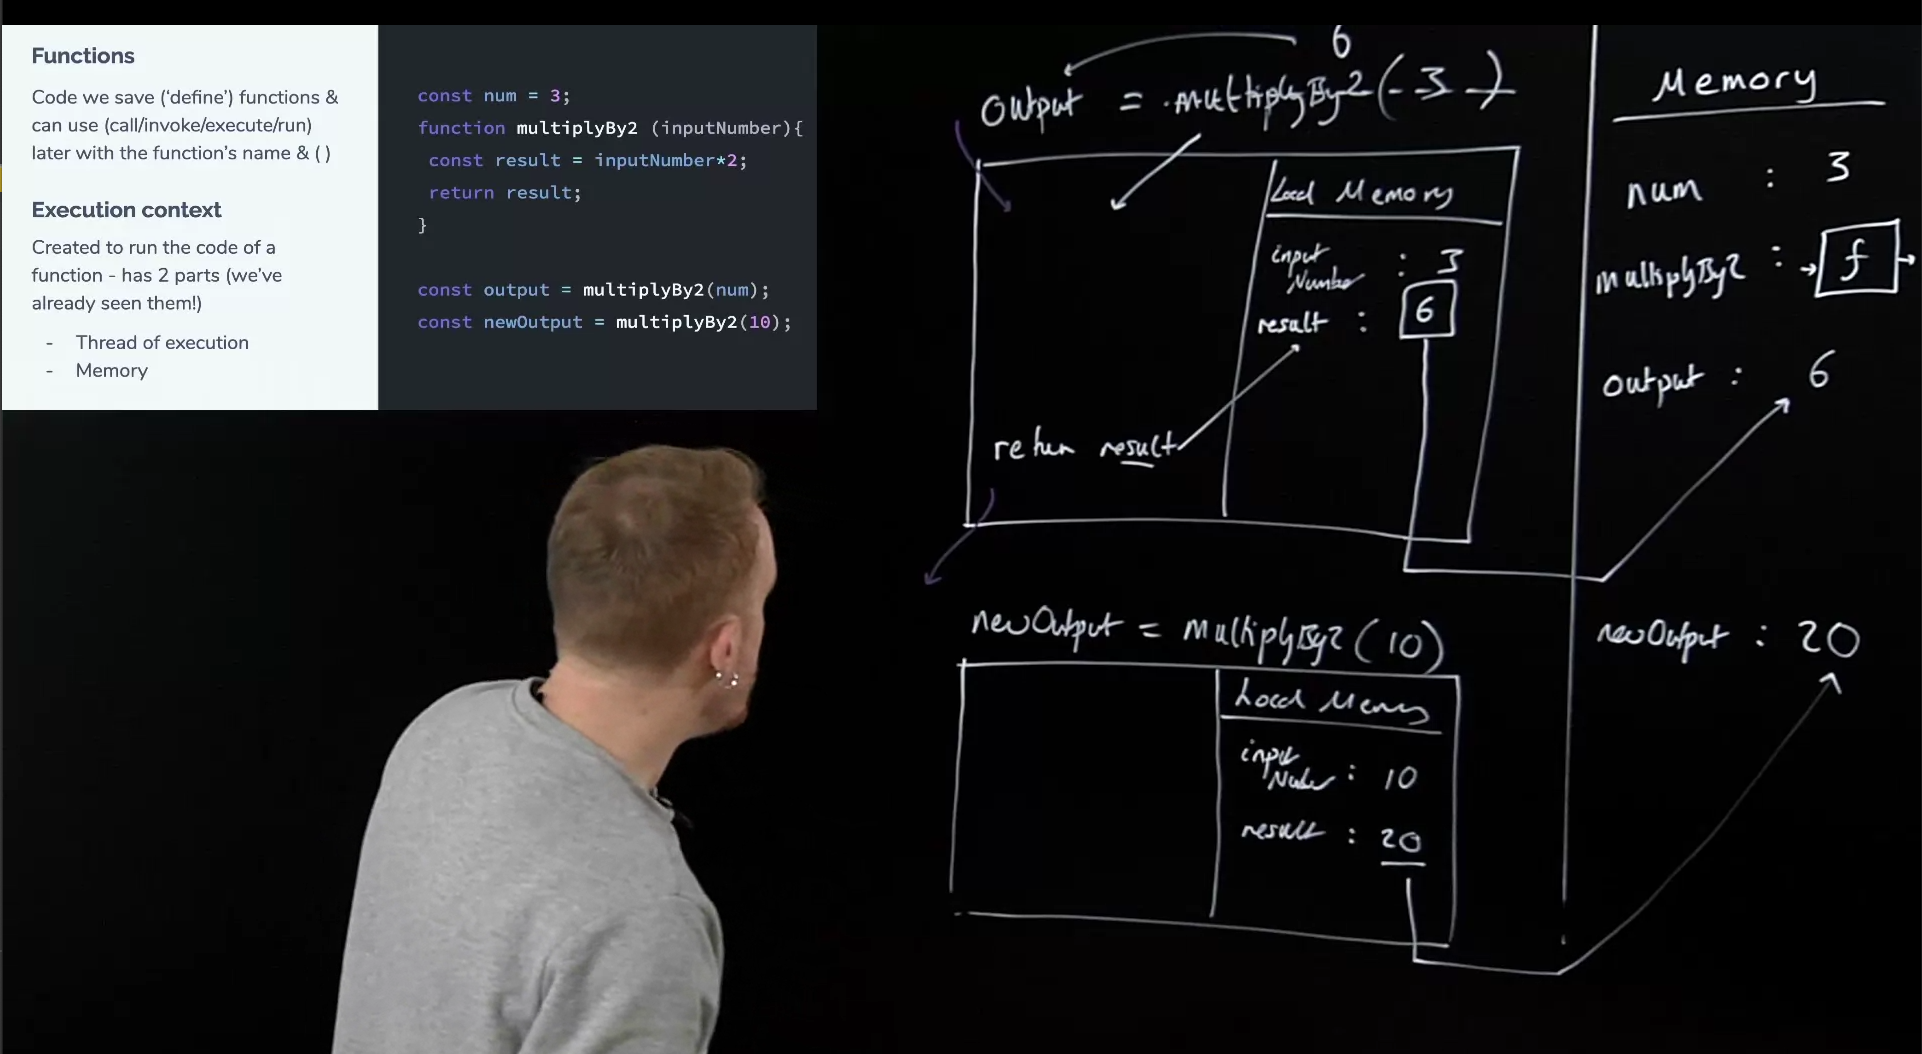 Functions
Code we save (‘define’) functions &
can use (call/invoke/execute/run)
later with the function’s name & ( )
Execution context
Created to run the code of a
function - has 2 parts (we’ve
already seen them!)
- Thread of execution
- Memory
const num = 3;
function multiplyBy2 (inputNumber){
const result = inputNumber*2;
return result;
}
const output = multiplyBy2(num);
const newOutput = multiplyBy2(10);
6
output = multiplyBy2(3)
Local Memory
input
Number : 3
result : 6
return result
newOutput = multiplyBy2(10)
Local Memory
input
Number : 10
result : 20
Memory
num : 3
multiplyBy2 : f
output : 6
newOutput : 20